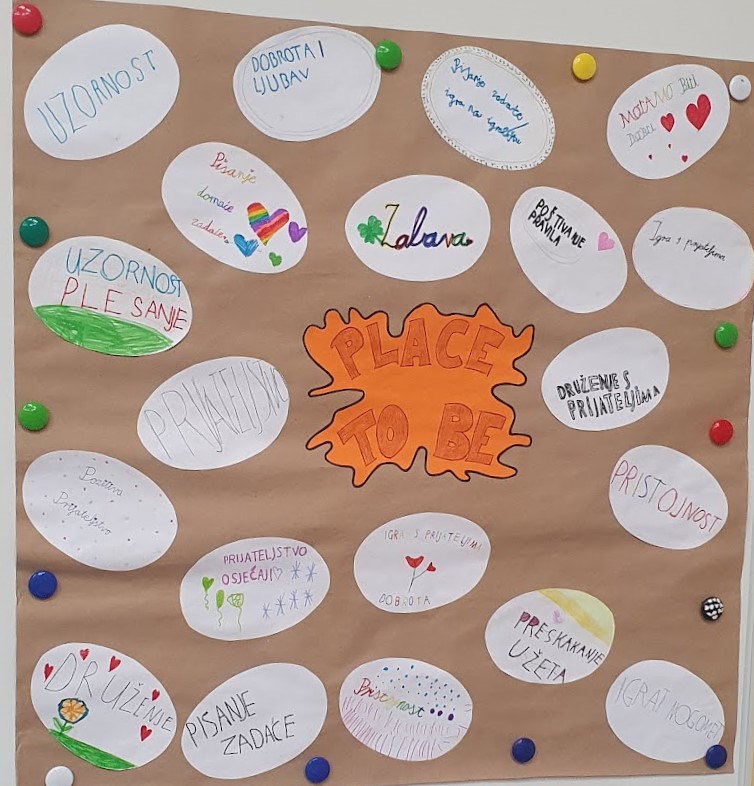 UZORNOST
DOBROTA I
LJUBAV
Pisanje zadaće
igra na igralištu
MORAMO Biti
Dobri
Pisanje
domaće
zadaće
Zabava
POŠTIVANJE
PRAVILA
Igra s prijateljima
UZORNOST
PLESANJE
PLACE
TO BE
PRIJATELJSTVO
DRUŽENJE S
PRIJATELJIMA
Pozitiva
Prijateljstvo
PRISTOJNOST
IGRA S PRIJATELJIMA
DOBROTA
PRIJATELJSTVO
OSJEĆAJI
PRESKAKANJE
UŽETA
DRUŽENJE
PISANJE
ZADAĆE
Pristojnost
IGRAT NOGOMET